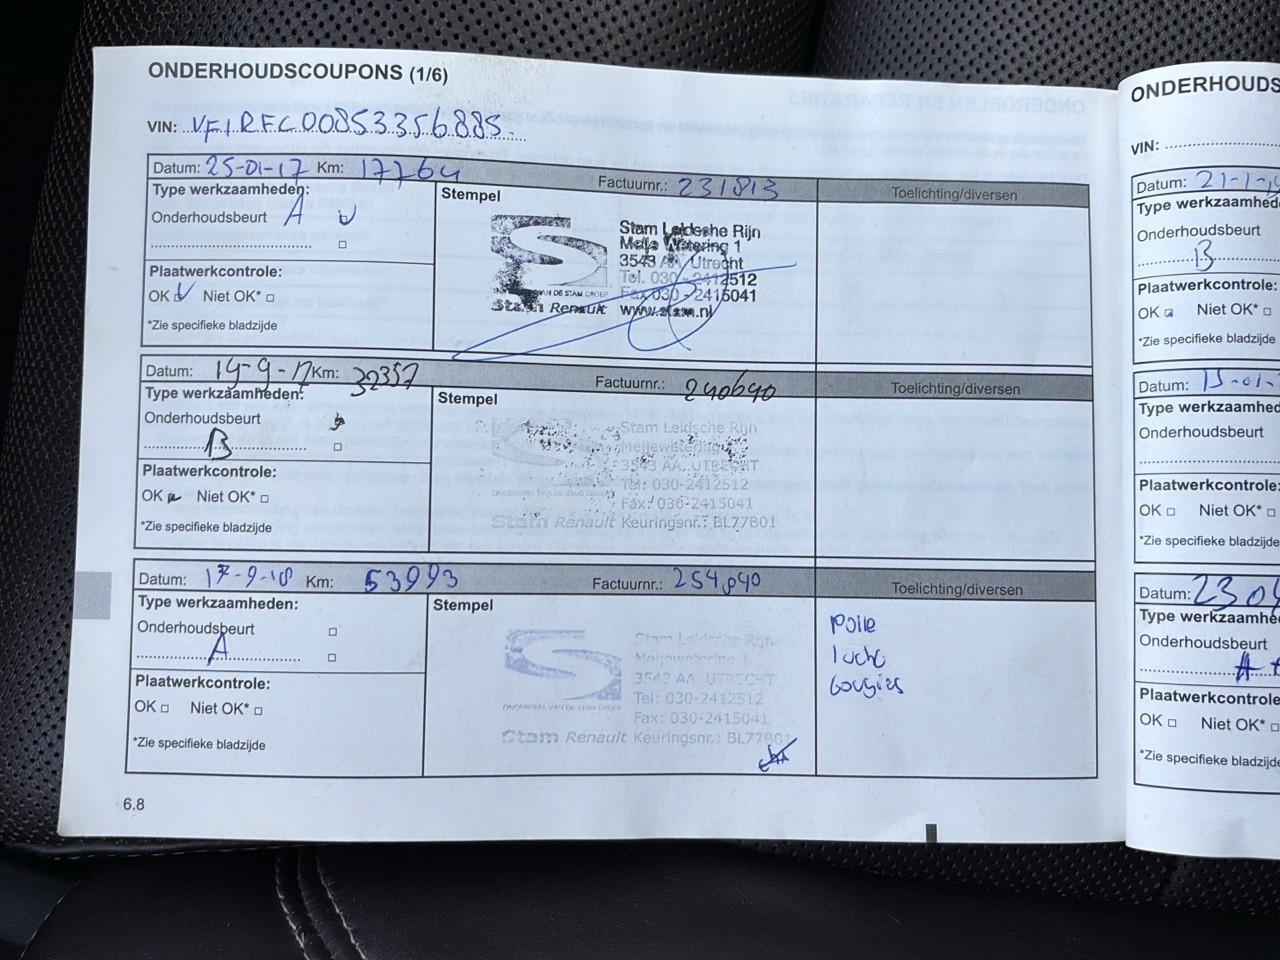 ONDERHOUDSCOUPONS (1/6)
VIN: VF1RFC00853356885
Datum: 25-01-17 Km: 17764 Factuurnr.: 231813 Toelichting/diversen
Type werkzaamheden:
Onderhoudsbeurt A
Plaatwerkcontrole:
OK Niet OK*
*Zie specifieke bladzijde
Stempel
Stam Leidsche Rijn
Meije Wetering 1
3543 AA Utrecht
Tel. 030-2412512
Fax 030-2415041
www.stam.nl
Stam Renault
Datum: 19-9-17 Km: 32357 Factuurnr.: 240640 Toelichting/diversen
Type werkzaamheden:
Onderhoudsbeurt
B
Plaatwerkcontrole:
OK Niet OK*
*Zie specifieke bladzijde
Stempel
Stam Leidsche Rijn
Meijewetering
3543 AA UTRECHT
Tel: 030-2412512
Fax: 030-2415041
Stam Renault Keuringsnr.: BL77B01
Datum: 17-9-18 Km: 53993 Factuurnr.: 254840 Toelichting/diversen
Type werkzaamheden:
Onderhoudsbeurt
A
Plaatwerkcontrole:
OK Niet OK*
*Zie specifieke bladzijde
Stempel
Stam Leidsche Rijn
Meijewetering 1
3543 AA UTRECHT
Tel: 030-2412512
Fax: 030-2415041
ONDERDEEL VAN DE STAM GROEP
Stam Renault Keuringsnr.: BL77B01
lucht
bougies
6.8
ONDERHOUDS
VIN:
Datum: 21-1-
Type werkzaamhed
Onderhoudsbeurt
B
Plaatwerkcontrole:
OK Niet OK*
*Zie specifieke bladzijde
Datum: 15-01-
Type werkzaamhed
Onderhoudsbeurt
Plaatwerkcontrole:
OK Niet OK*
*Zie specifieke bladzijde
Datum: 23 04
Type werkzaamhe
Onderhoudsbeurt
A +
Plaatwerkcontrole
OK Niet OK*
*Zie specifieke bladzijde